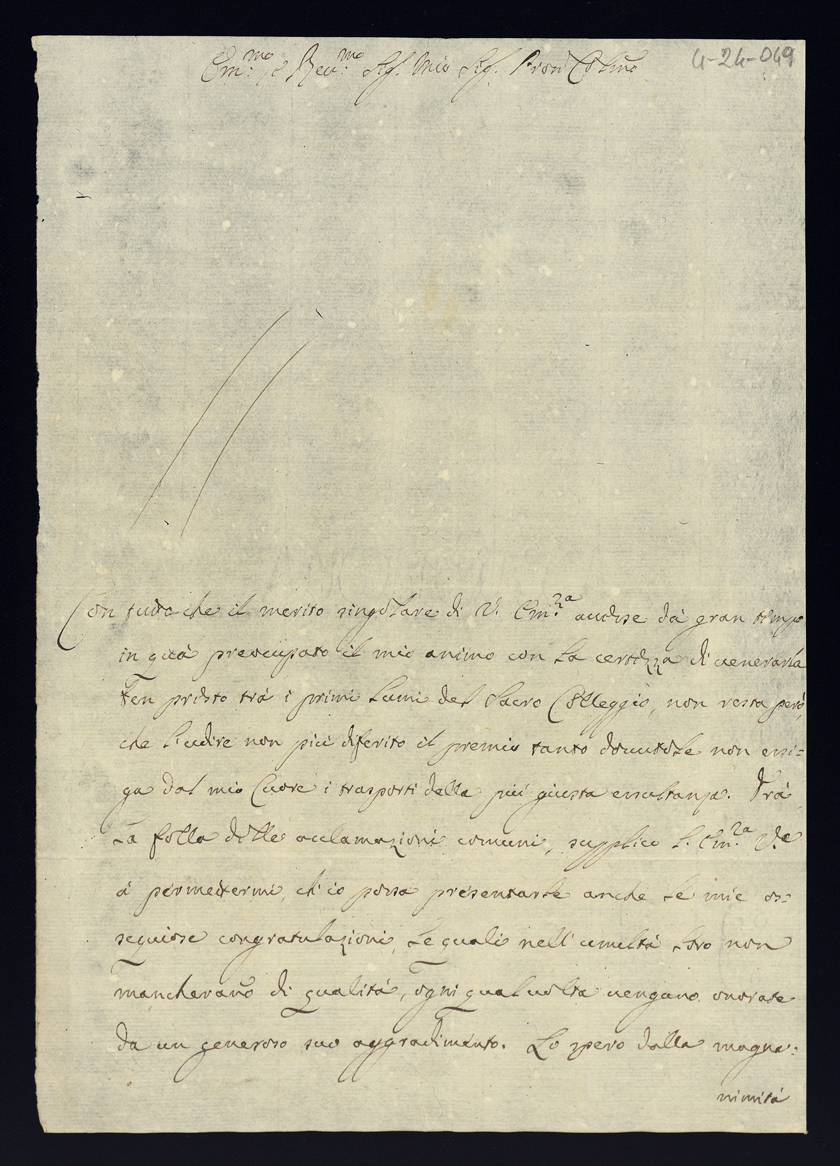 4-24-049
Em.mo e Rev.mo Sig. Mio Sig. Pron Colmo
Con tutto che il merito singolare di V. Em.za avesse da gran tempo
in quà preocupato il mio animo con la certezza di venerarla
ben presto trà i primi lumi del Sacro Colleggio, non resta però,
che l'udire non più diferito il premio tanto dovutole non ensi=
ga dal mio Cuore i trasporti della più giusta ensultanza. Trà
la folla delle acclamazioni comuni, supplico l'Em.za V.a
à permettermi, ch'io possa presentarle anche le mie os=
sequiose congratulazioni, le quali nell'umiltà loro non
mancherano di qualità, ogni qual volta vengano onorate
da un generoso suo aggradimento. Lo spero dalla magna=
nimità